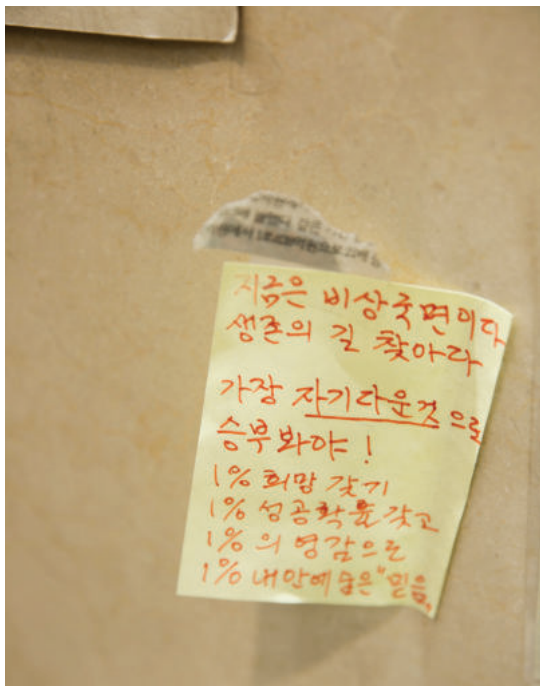 지금은 비상국면이다
생존의 길 찾아라
가장 자기다운것으로
승부봐야!
1% 희망 갖기
1% 성공확률갖고
1%의 영감으로
1% 내안에 "믿음"